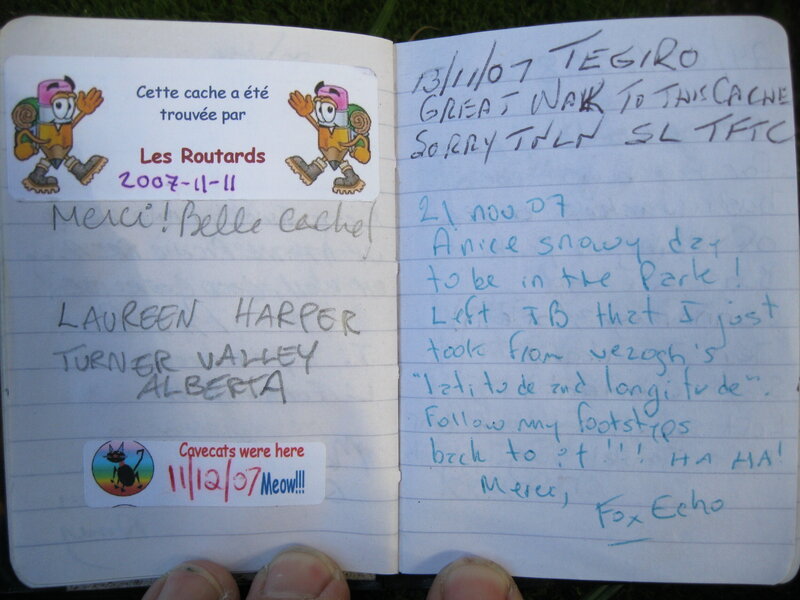 Cette cache a été
trouvée par
Les Routards
2007-11-11
Merci! Belle cache!
LAUREEN HARPER
TURNER VALLEY
ALBERTA
Cavecats were here
11/12/07 Meow!!!
13/11/07 TEGIRO
GREAT WALK TO THIS CACHE
SORRY TNLN SL TFTC
21 nov 07
A nice snowy day
to be in the Park!
Left TB that I just
took from
"latitude and longitude".
Follow my footsteps
back to it!!! HA HA!
Merci,
Fox Echo